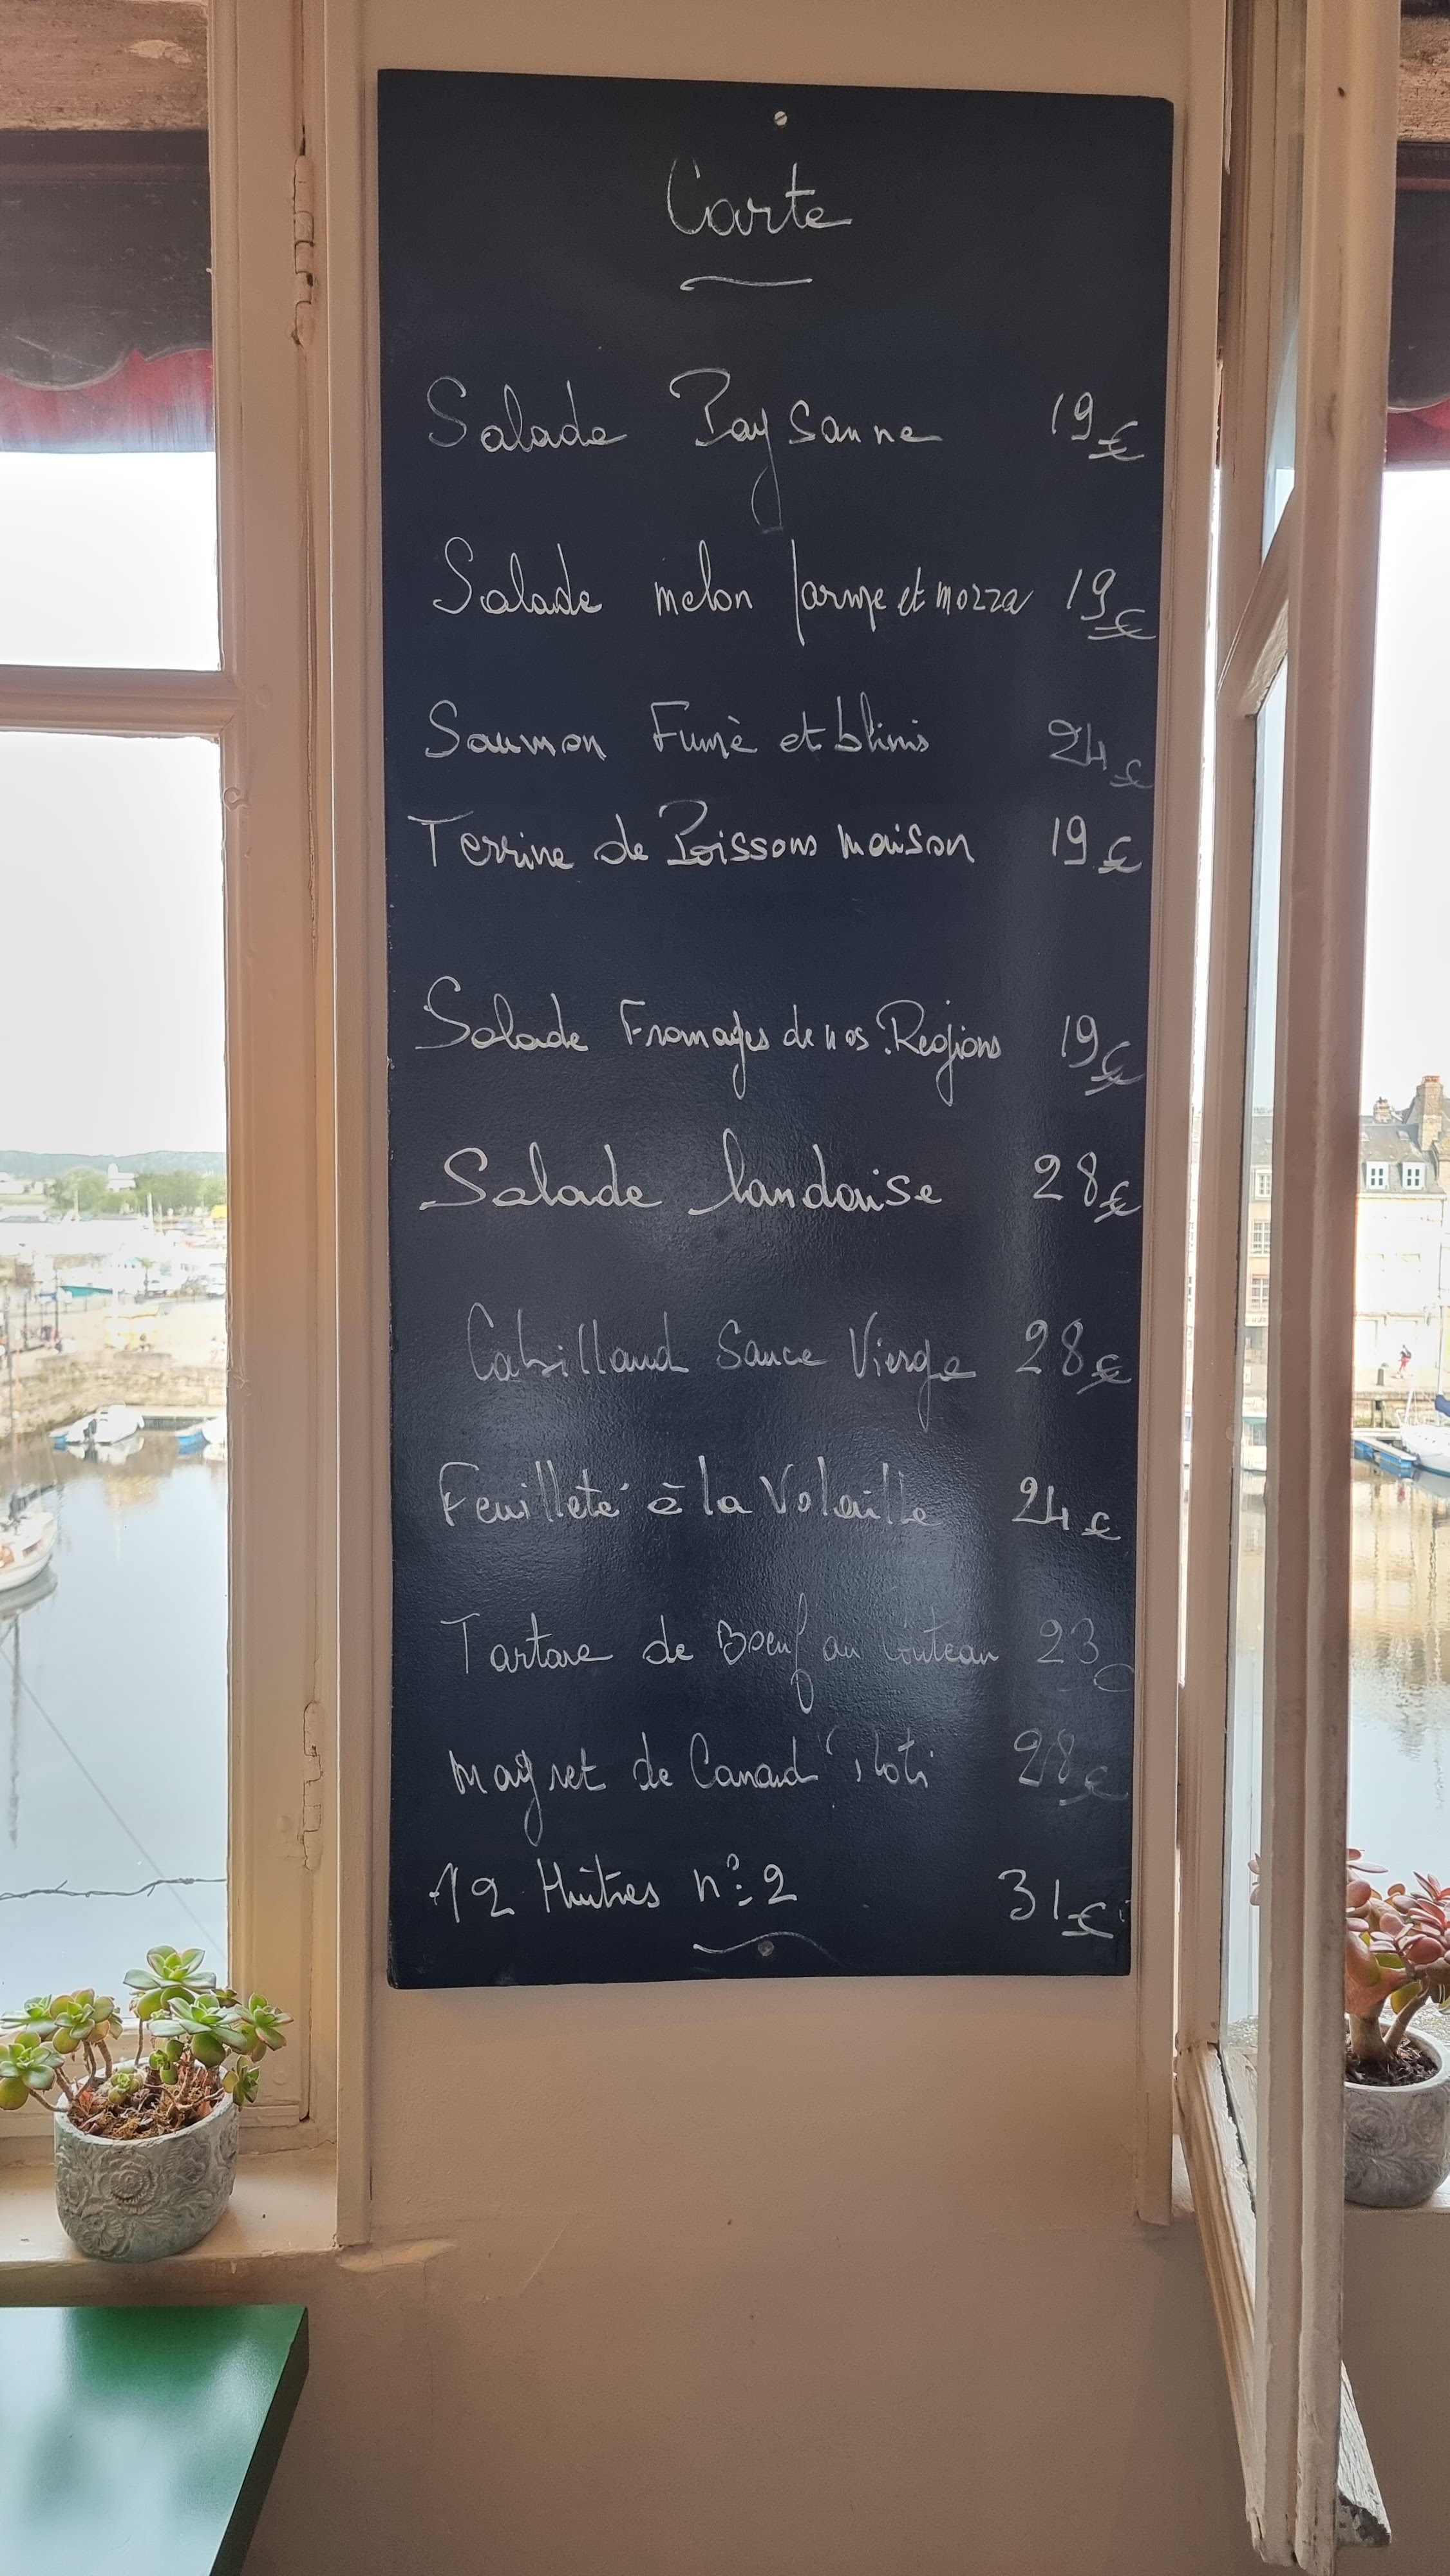 Carte
Salade Paysanne 19€
Salade melon parme et mozza 19€
Saumon Fumè et blinis 24€
Terrine de Poissons maison 19€
Salade Fromages de nos Regions 19€
Salade landaise 28€
Cabillaud Sauce Vierge 28€
Feuilleté à la Volaille 24€
Tartare de Boeuf au Couteau 23
Magret de Canard rôti 28€
12 Huîtres n°2 31€